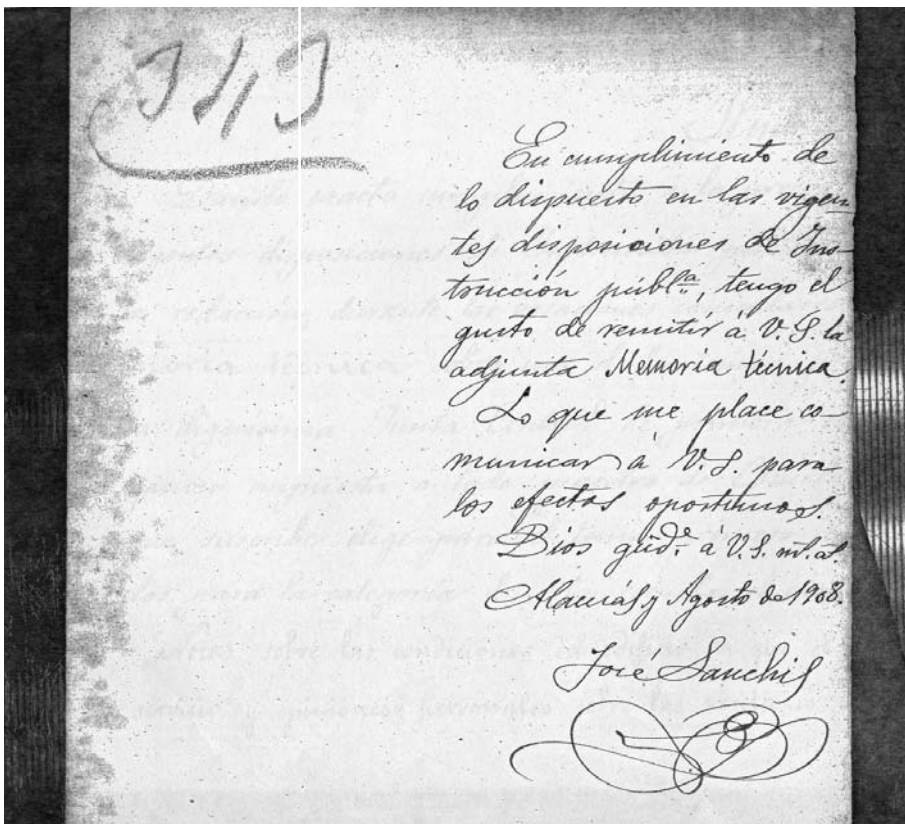 En cumplimiento de
lo dispuesto en las vigen-
tes disposiciones de Ins-
trucción públª, tengo el
gusto de remitir á V. S. la
adjunta Memoria técnica.
Lo que me place co-
municar á V. S. para
los efectos oportunos.
Dios gũdẽ á V. S. m.ˢ a.ˢ
Alacuás y Agosto de 1908.
José Sanchis